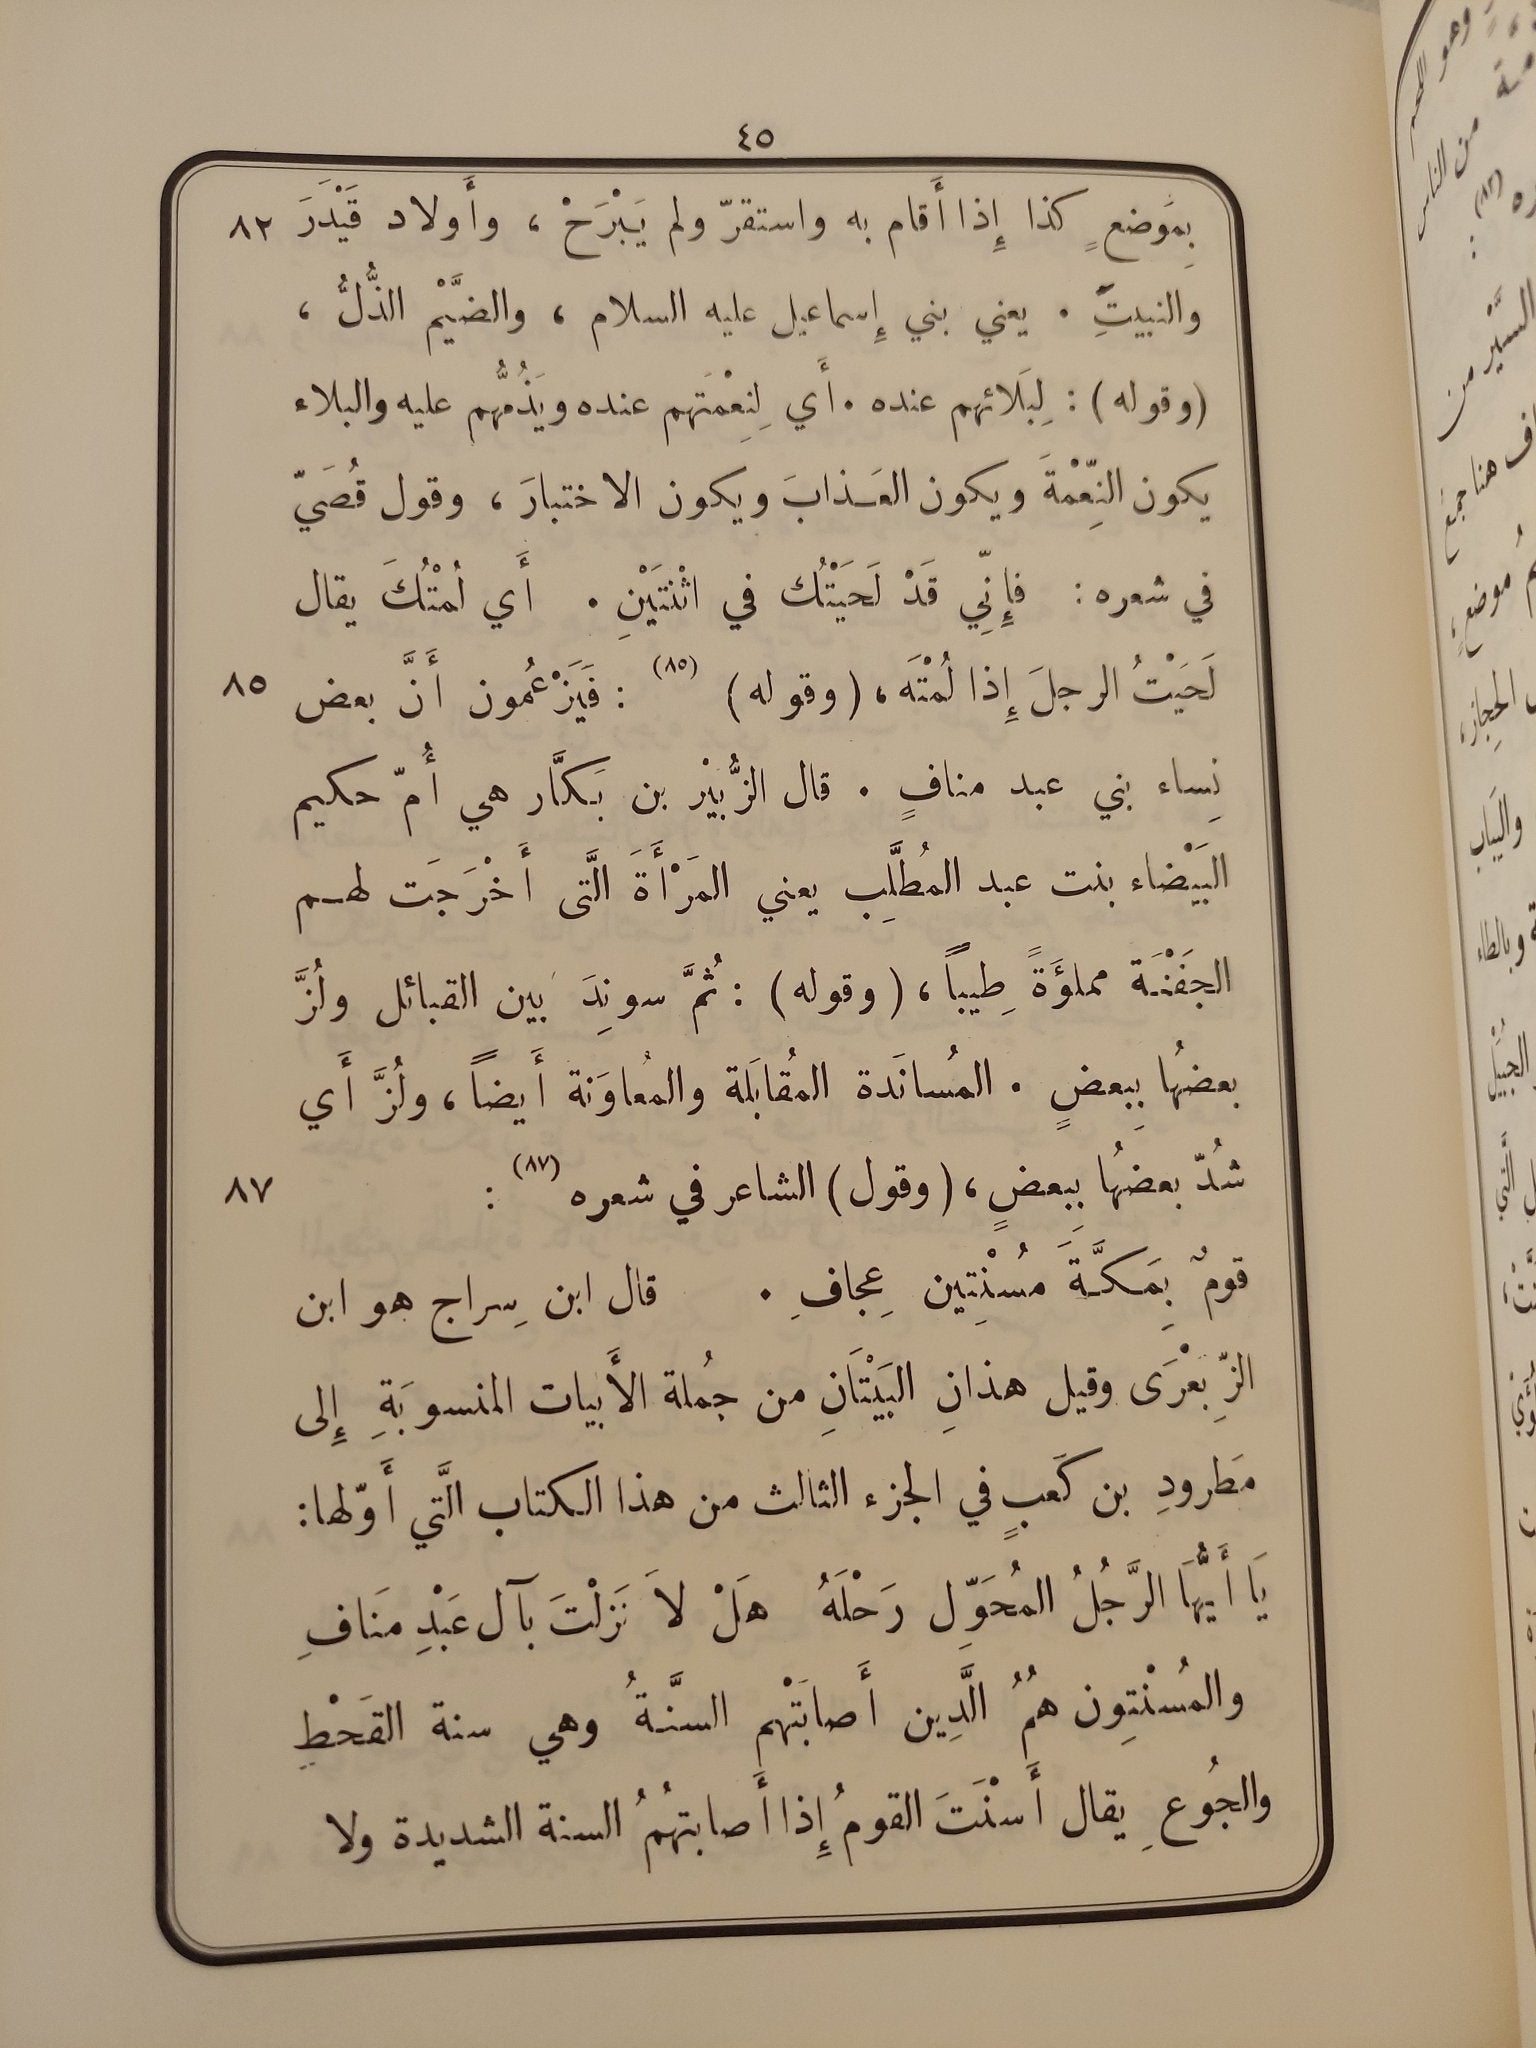 ٤٥
بِمَوضعٍ كذا إِذا أَقام به واستقرّ ولم يَبْرَحْ ، وأَولاد قَيْدَرَ ٨٢
والنبيتِ . يعني بني إِسماعيل عليه السلام ، والضَّيْم الذُّلُّ ،
(وقوله) : لِبَلائهم عنده . أَي لِنِعْمَتهم عنده ويَذُمُّهم عليه والبلاء
يكون النِّعْمَةَ ويكون العَذابَ ويكون الاختبارَ ، وقول قُصَيّ
في شعره : فإِنّي قَدْ لَحَيْتُك في اثْنَتَيْنِ . أَي لُمْتُكَ يقال
لَحَيْتُ الرجلَ إِذا لُمْتَه ، (وقوله) (٨٥) : فَيَزْعُمون أَنَّ بعض ٨٥
نِساء بني عبد منافٍ . قال الزُّبَيْر بن بَكَّار هي أُمّ حكيم
البَيْضاء بنت عبد المُطَّلِب يعني المَرْأَةَ الَّتى أَخْرَجَت لهم
الجَفْنَة مملؤَةً طِيباً ، (وقوله) : ثُمَّ سونِدَ بَين القبائل ولُزَّ
بعضُها بِبعضٍ . المُسانَدة المُقابَلة والمُعاوَنة أَيضاً ، ولُزَّ أَي
شُدّ بعضُها بِبعضٍ ، (وقول) الشاعر في شعره (٨٧) : ٨٧
قومٌ بِمَكَّةَ مُسْنِتِين عِجافِ . قال ابن سِراج هو ابن
الزِّبَعْرَى وقيل هذانِ البَيْتَانِ من جُملة الأَبيات المنسوبَةِ إِلى
مَطرودِ بن كَعبٍ في الجزء الثالث من هذا الكتاب الَّتي أَوّلها:
يَا أَيُّهَا الرَّجُلُ المُحَوِّل رَحْلَهُ هَلْ لاَ نَزَلْتَ بآل عَبْدِ مَنَافِ
والمُسْنْتِون هُمُ الَّذِين أَصابَتْهم السنَّةُ وهي سنة القَحْطِ
والجُوعِ يقال أَسْنَتَ القومُ إِذا أَصابتهُمُ السنة الشديدة ولا